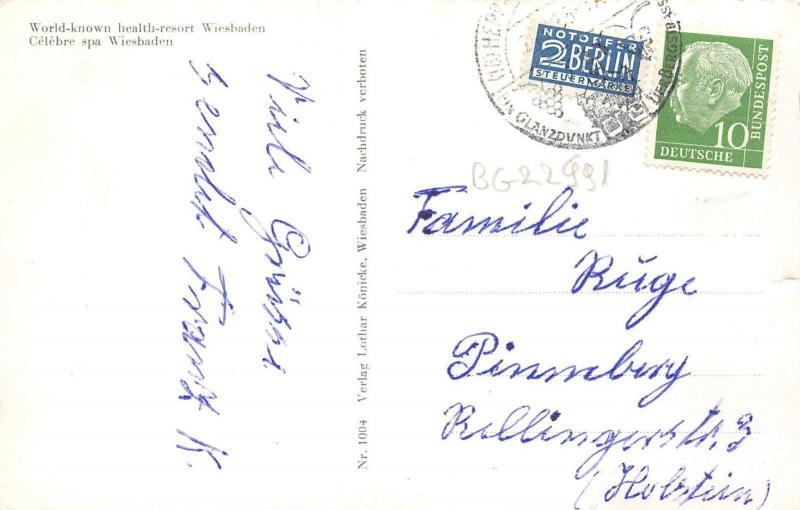 World-known health-resort Wiesbaden
Célèbre spa Wiesbaden
Viele Grüsse
sendet Frank K.
Nr. 1004 Verlag Lothar Könicke, Wiesbaden Nachdruck verboten
NOTOPFER
2 BERLIN
STEUERMARKE
EIN GLANZPUNKT
DEUTSCHE
10
BUNDESPOST
BG22991
Familie
Ruge
Pinneberg
Rellingerstr. 3
(Holstein)